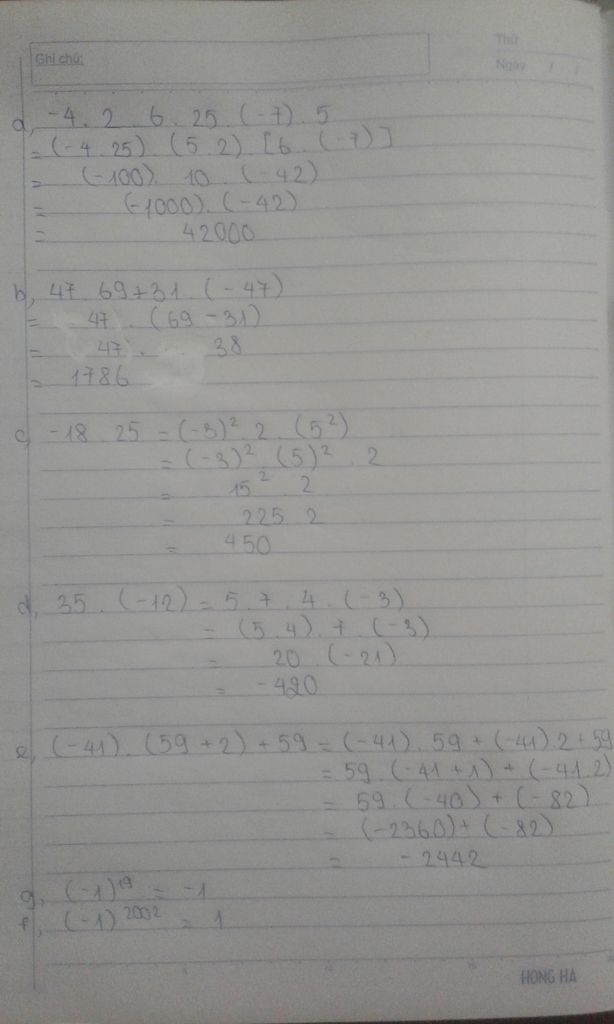 Ghi chú:
Thứ
Ngày / /
a, -4 . 2 . 6 . 25 . (-7) . 5
= (-4 . 25) . (5 . 2) . [6 . (-7)]
= (-100) . 10 . (-42)
= (-1000) . (-42)
= 42000
b, 47 . 69 + 31 . (-47)
= 47 . (69 - 31)
= 47 . 38
= 1786
c, -18 . 25 = (-3)² . 2 . (5²)
= (-3)² . (5)² . 2
= 15² . 2
= 225 . 2
= 450
d, 35 . (-12) = 5 . 7 . 4 . (-3)
= (5 . 4) . 7 . (-3)
= 20 . (-21)
= -420
e, (-41) . (59 + 2) + 59 = (-41) . 59 + (-41) . 2 + 59
= 59 . (-41 + 1) + (-41 . 2)
= 59 . (-40) + (-82)
= (-2360) + (-82)
= -2442
g, (-1)¹⁹ = -1
f, (-1)²⁰⁰² = 1
HONG HA